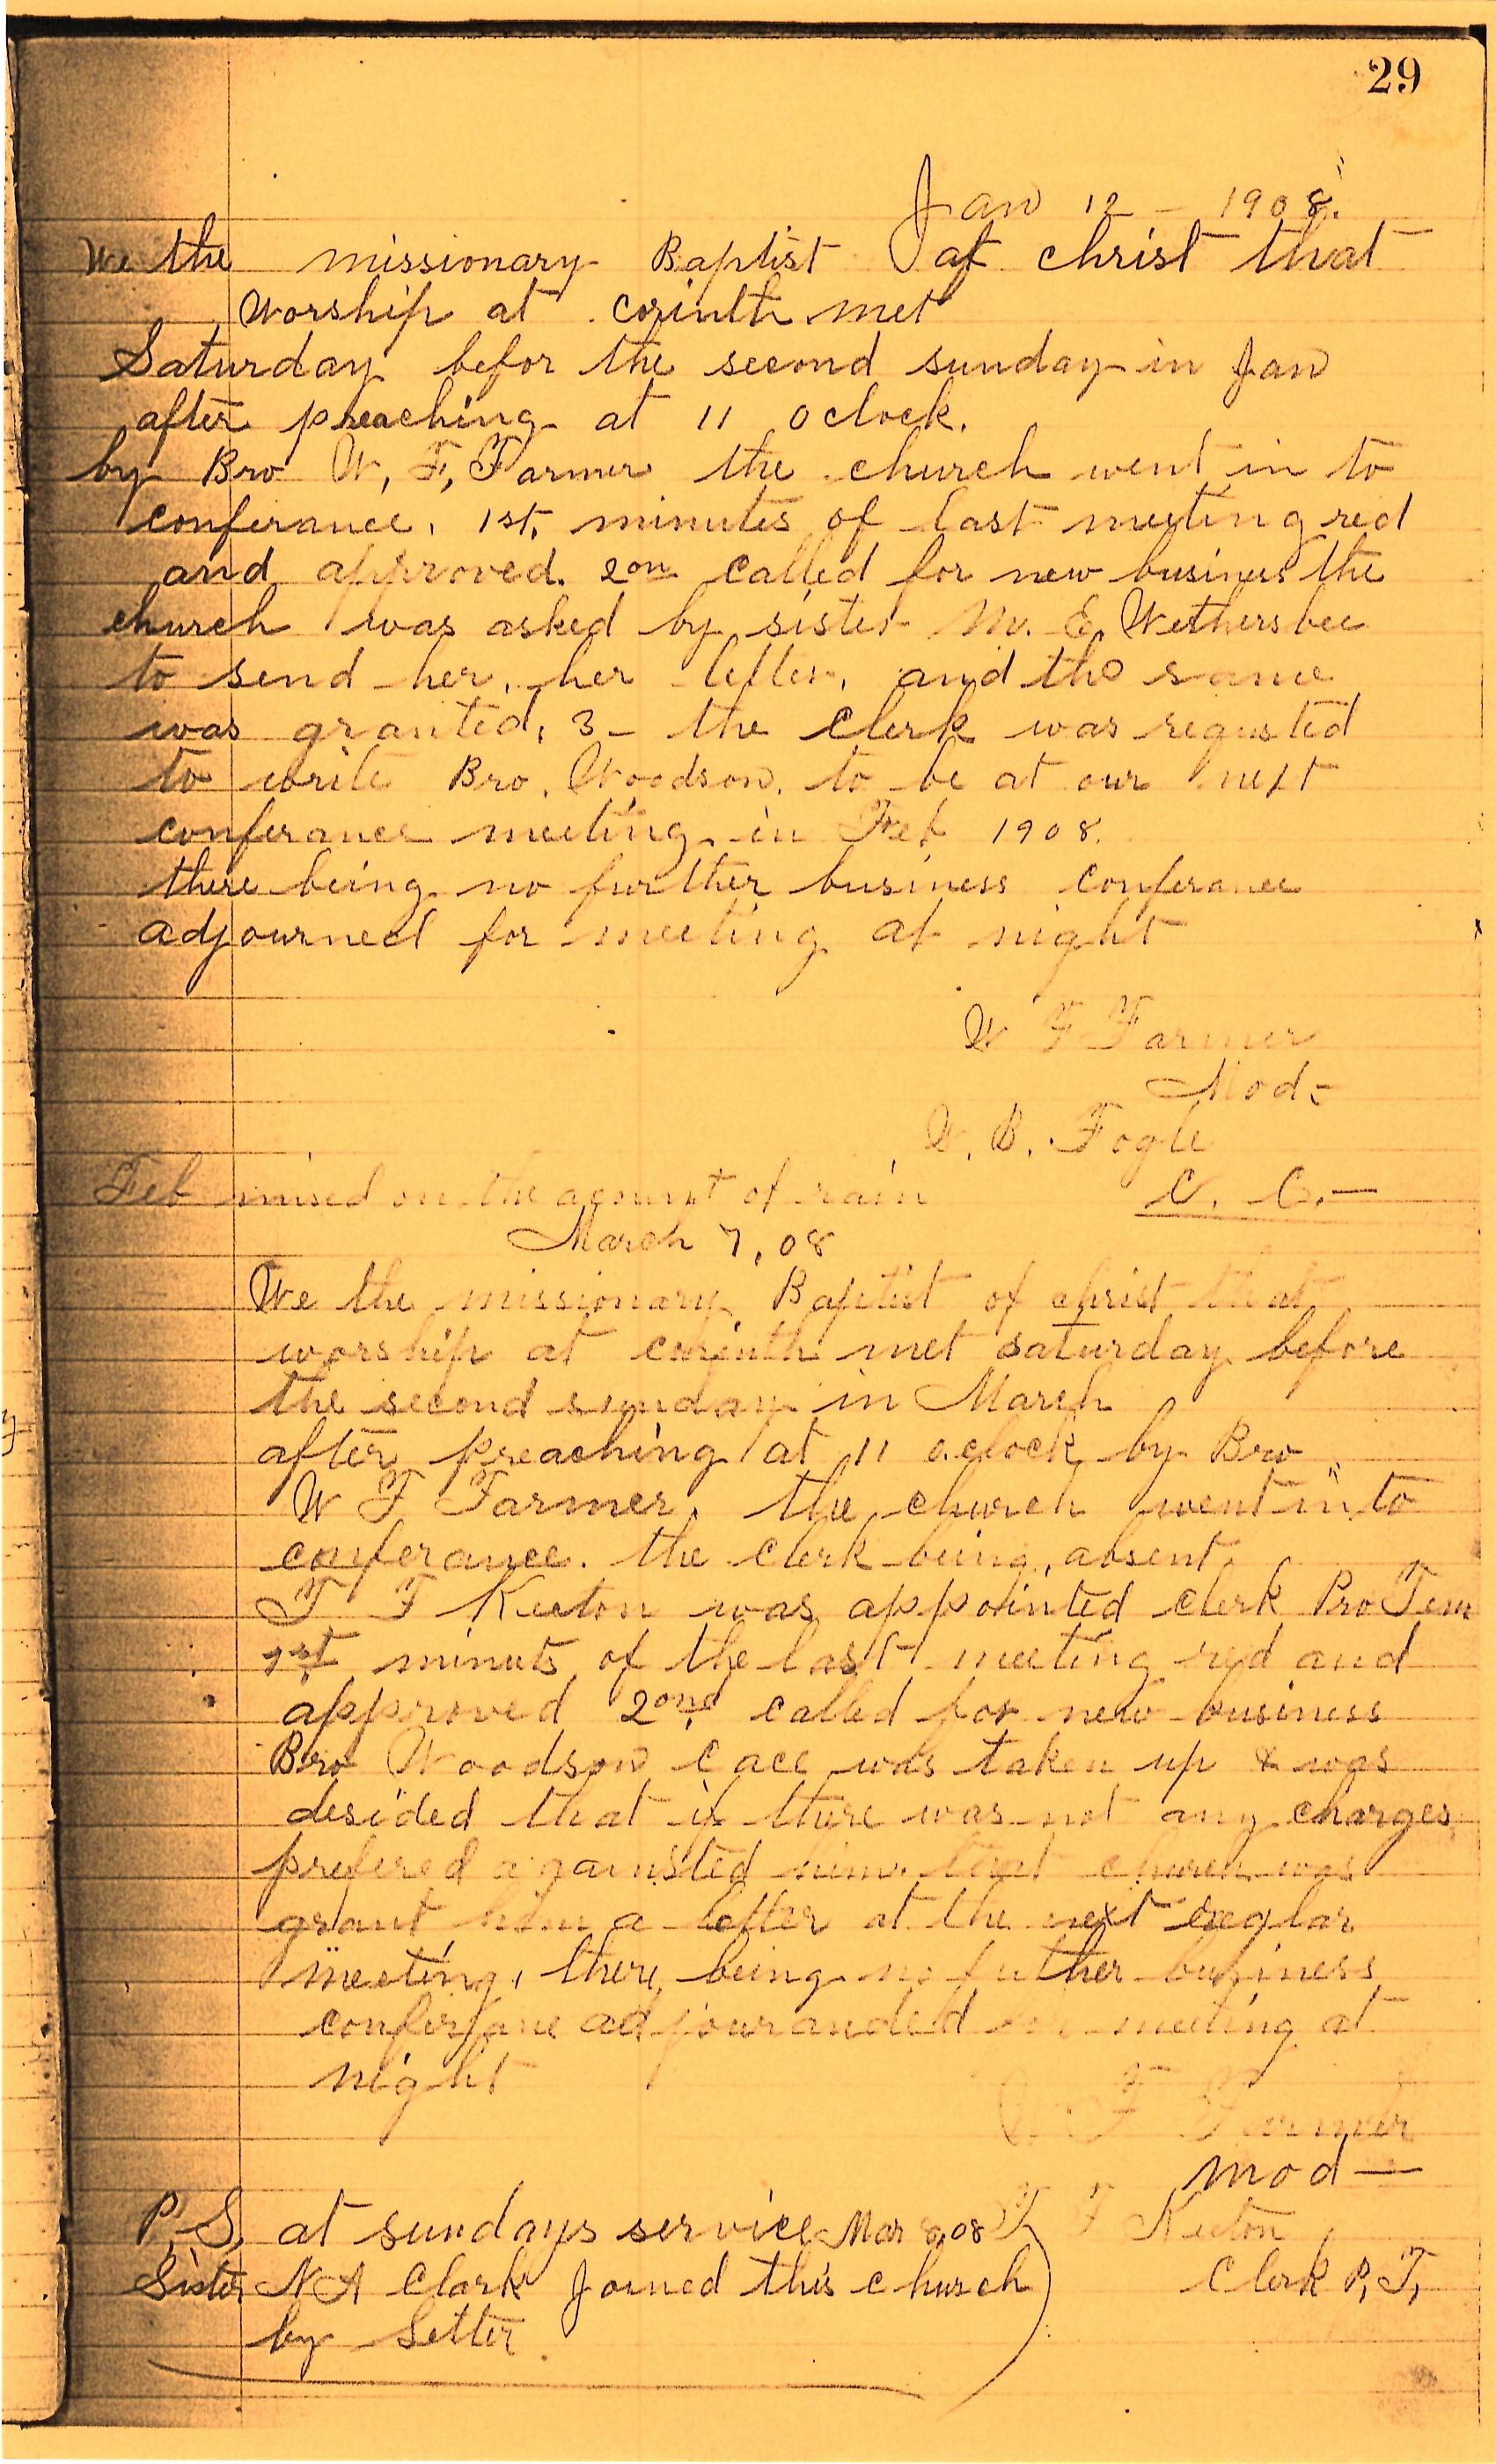 29
Jan 12 - 1908.
We the missionary Baptist of christ that
Worship at corinth met
Saturday befor the second sunday in Jan
after preaching at 11 oclock.
by Bro W. F. Farmer the church went in to
conferance. 1st. minutes of last meeting red
and approved. 2on called for new business the
church was asked by sister M. E. Wethersbee
to send her, her letter, and the same
was granted, 3 - the clerk was requsted
to write Bro. Woodson. to be at our next
conferance meeting in Feb 1908.
there being no further business conferance
adjourned for meeting at night
W F Farmer
Mod-
W. B. Fogle
C. C.-
Feb missed on the acount of rain
March 7, 08
We the missionary Baptist of christ that
worship at corinth met saturday before
the second sunday in March
after preaching at 11 oclock by Bro
W F Farmer. the church went in to
conferance. the clerk being absent
T F Keeton was appointed clerk Pro Tem
1st minuts of the last meeting red and
approved 2ond called for new business
Bro Woodson cace was taken up & was
desided that if there was not any charges
prefered againsted him. that church was
grant him a letter at the next reglar
meeting, there being no futher business
conferane adjouranded for meeting at
night
W. F Farmer
mod-
T F Keeton
Clerk P. T.
P. S. at sundays service Mar 8, 08
Sister N A Clark Joined this church
by Letter.